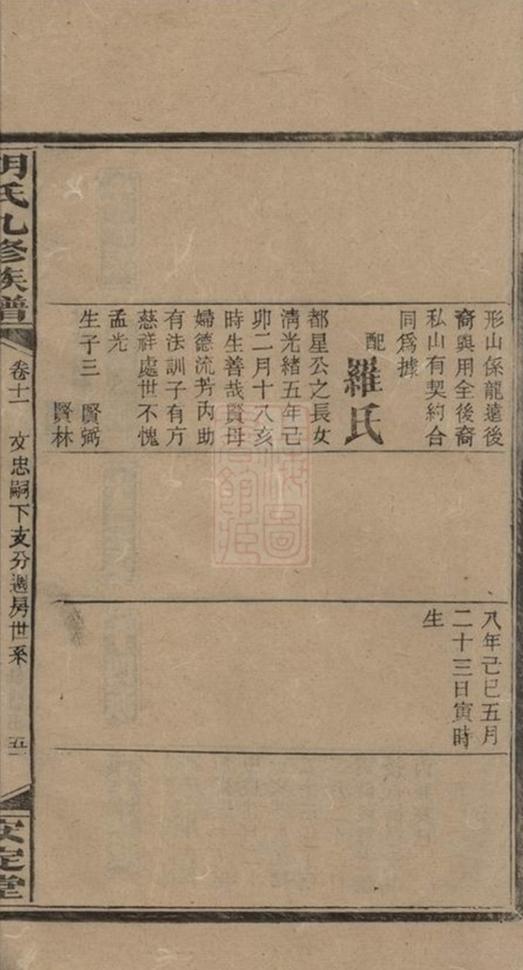 形山係龍遠後
裔與用全後裔
私山有契約合
同爲據
配
羅氏
都星公之長女
淸光緒五年己
卯二月十八亥
時生善哉賢母
婦德流芳內助
有法訓子有方
慈祥處世不愧
孟光
生子三 賢弼
賢林
八年己巳五月
二十三日寅時
生
胡氏九修族譜
卷十一 文忠嗣下支分邐房世系
五一
安定堂